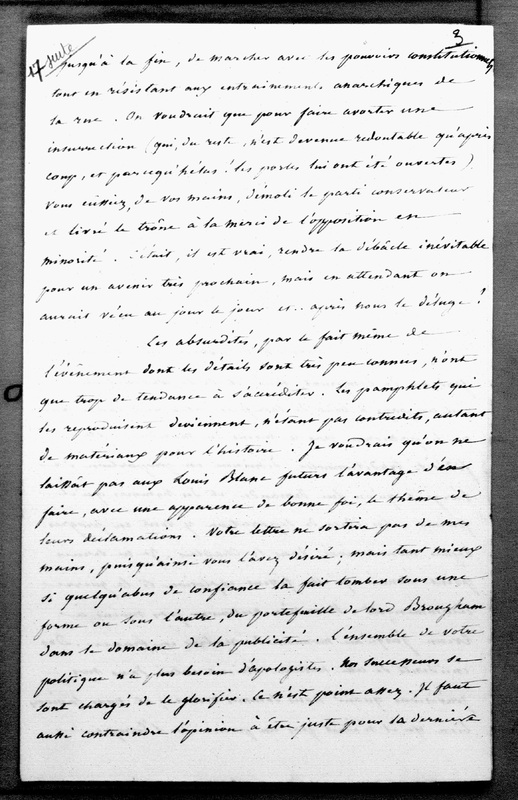 17 suite
3
jusqu'à la fin, de marcher avec les pouvoirs constitutionnels
tout en résistant aux entraînements anarchiques de
la rue. On voudrait que pour faire avorter une
insurrection (qui, du reste, n'est devenue redoutable qu'après
coup, et parcequ'hélas! les portes lui ont été ouvertes)
vous eussiez, de vos mains, démoli le parti conservateur
et livré le trône à la merci de l'opposition en
minorité. C'était, il est vrai, rendre la débâcle inévitable
pour un avenir très prochain, mais en attendant on
aurait vécu au jour le jour et... après nous le déluge!
Les absurdités, par le fait même de
l'évènement dont les détails sont très peu connus, n'ont
que trop de tendance à s'accréditer. Les pamphlets qui
les reproduisent deviennent, n'étant pas contredits, autant
de matériaux pour l'histoire. Je voudrais qu'on ne
laissât pas aux Louis Blanc futurs l'avantage d'en
faire, avec une apparence de bonne foi, le thème de
leurs déclamations. Votre lettre ne sortira pas de mes
mains, puisqu'ainsi vous l'avez désiré; mais tant mieux
si quelqu'abus de confiance la fait tomber sous une
forme ou sous l'autre, du portefeuille de lord Brougham
dans le domaine de la publicité. L'ensemble de votre
politique n'a plus besoin d'apologistes. Nos successeurs se
sont chargés de le glorifier. Ce n'est point assez. Il faut
aussi contraindre l'opinion à être juste pour la dernière